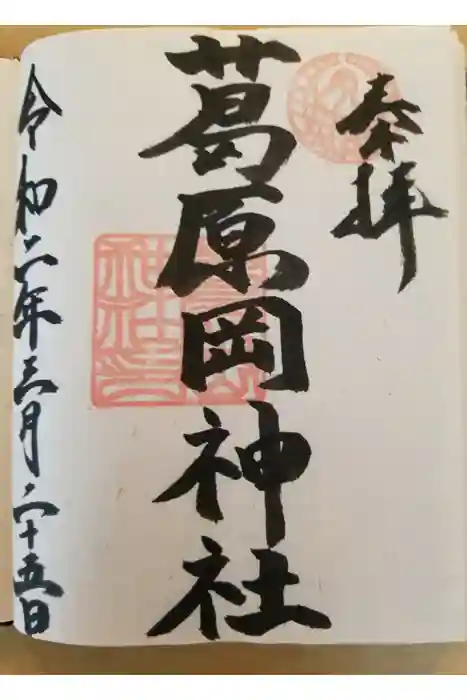 奉拝
葛原岡神社
令和二年三月二十五日